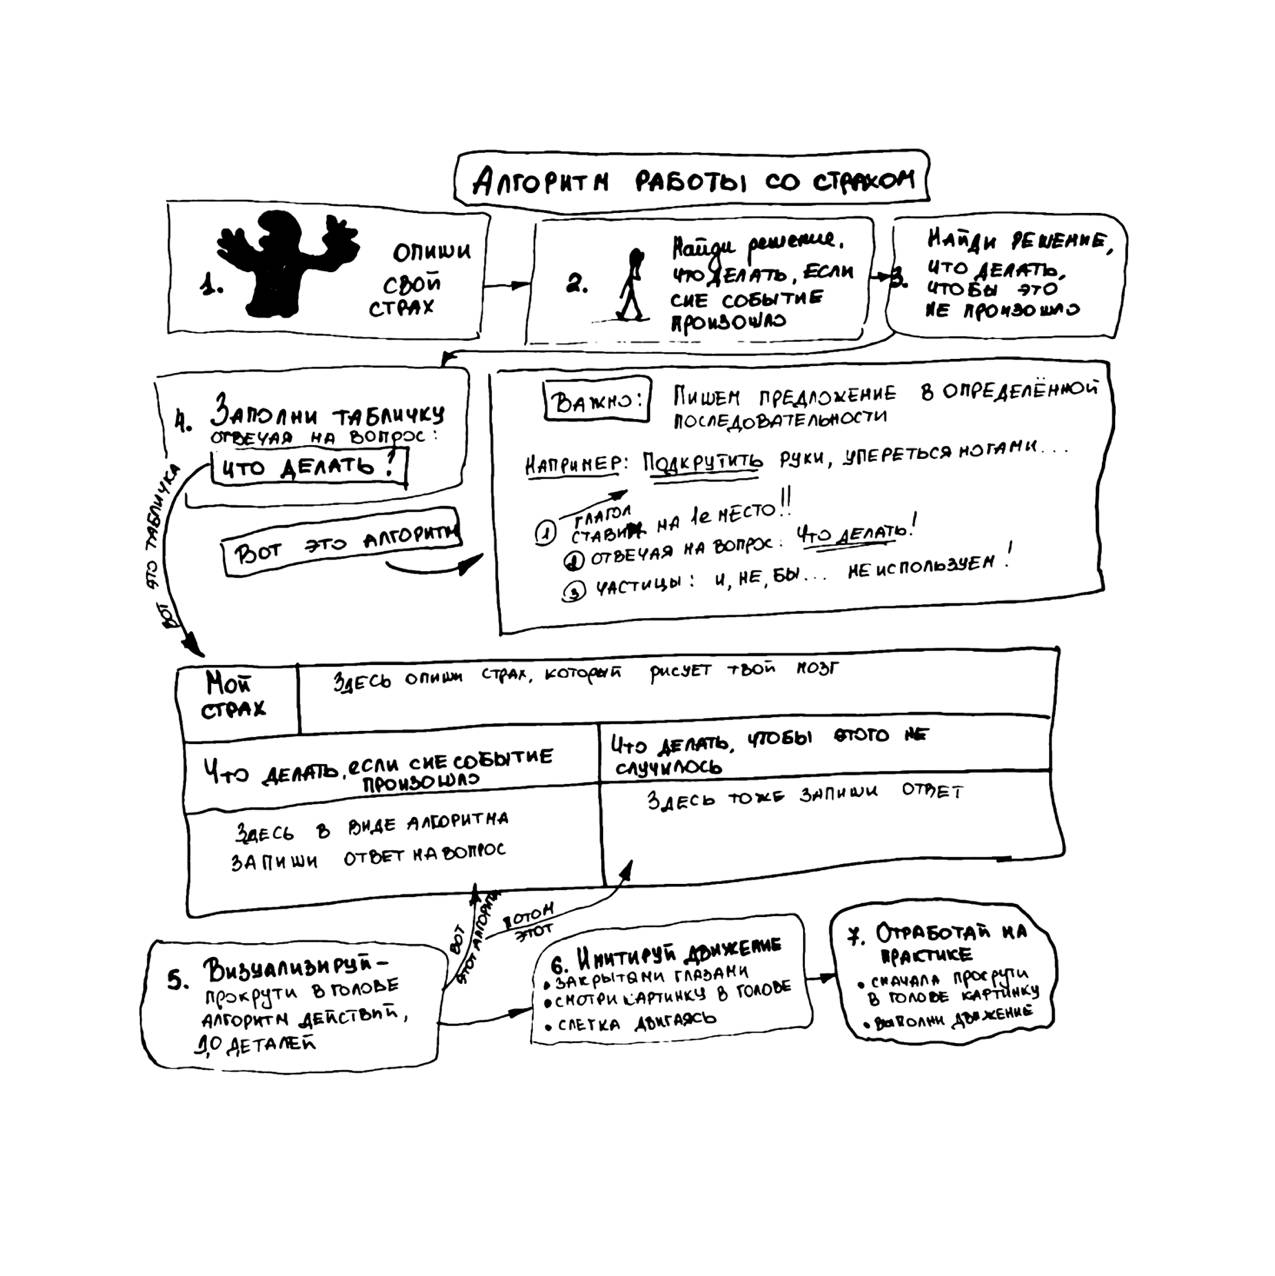 АЛГОРИТМ РАБОТЫ СО СТРАХОМ
1.
ОПИШИ
СВОЙ
СТРАХ
2.
Найди решение,
ЧТО ДЕЛАТЬ, ЕСЛИ
СИЕ СОБЫТИЕ
ПРОИЗОШЛО
3.
НАЙДИ РЕШЕНИЕ,
ЧТО ДЕЛАТЬ,
ЧТОБЫ ЭТО
НЕ ПРОИЗОШЛО
4. ЗАПОЛНИ ТАБЛИЧКУ
ОТВЕЧАЯ НА ВОПРОС:
ЧТО ДЕЛАТЬ!
ВОТ ЭТО ТАБЛИЧКА
ВОТ ЭТО АЛГОРИТМ
ВАЖНО: ПИШЕМ ПРЕДЛОЖЕНИЕ В ОПРЕДЕЛЁННОЙ
ПОСЛЕДОВАТЕЛЬНОСТИ
НАПРИМЕР: ПОДКРУТИТЬ РУКИ, УПЕРЕТЬСЯ НОГАМИ...
1 ГЛАГОЛ
СТАВИМ НА 1е МЕСТО!!
2 ОТВЕЧАЯ НА ВОПРОС: ЧТО ДЕЛАТЬ!
3 ЧАСТИЦЫ: И, НЕ, БЫ... НЕ ИСПОЛЬЗУЕМ!
МОЙ
СТРАХ
ЗДЕСЬ ОПИШИ СТРАХ, КОТОРЫЙ РИСУЕТ ТВОЙ МОЗГ
ЧТО ДЕЛАТЬ, ЕСЛИ СИЕ СОБЫТИЕ
ПРОИЗОШЛО
ЧТО ДЕЛАТЬ, ЧТОБЫ ЭТОГО НЕ
СЛУЧИЛОСЬ
ЗДЕСЬ В ВИДЕ АЛГОРИТМА
ЗАПИШИ ОТВЕТ НА ВОПРОС
ЗДЕСЬ ТОЖЕ ЗАПИШИ ОТВЕТ
ВОТ
ЭТОТ АЛГОРИТМ
ПОТОМ
ЭТОТ
5. ВИЗУАЛИЗИРУЙ-
ПРОКРУТИ В ГОЛОВЕ
АЛГОРИТМ ДЕЙСТВИЙ,
ДО ДЕТАЛЕЙ
6. ИМИТИРУЙ ДВИЖЕНИЕ
• ЗАКРЫТЫМИ ГЛАЗАМИ
• СМОТРИ КАРТИНКУ В ГОЛОВЕ
• СЛЕГКА ДВИГАЯСЬ
7. ОТРАБОТАЙ НА
ПРАКТИКЕ
• СНАЧАЛА ПРОКРУТИ
В ГОЛОВЕ КАРТИНКУ
• ВЫПОЛНИ ДВИЖЕНИЕ